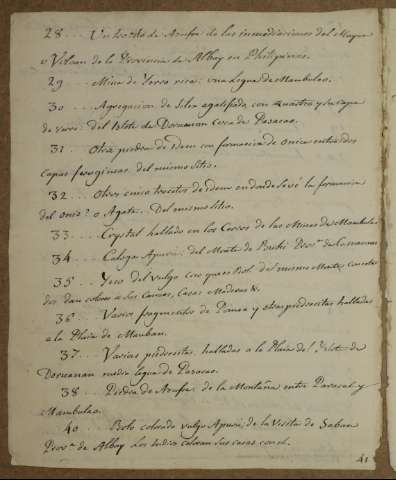 28... Un trozo de Azufre de las inmediaciones del Mayon
o Volcan de la Provencia de Albay en Philipinas.
29... Mina de Yerro rica: una Legua de Mambulao.
30... Agregacion de Silex agatifada con quatro y su capa
de varro. del Islote de Doruanan cerca de Paracas.
31... Otra piedra de Idem con formacion de onice entre dos
capas ferugineas del mismo sitio.
32... Otros cinco trocitos de Idem en donde se vé la formacion
del onix? o Agata. Del mismo sitio.
33... Crystal hallado en los Cerros de las Minas de Mambulao
34... Caliza Apuri: del Monte de Prov.ª de Camarines
35... Yeso del vulgo creo que es Bol del mismo Monte, con estos
dos dan colores a sus Casas Maderas &.
36... Varios fragmentos de Pomez y otras piedrecitas halladas
a la Plaia de Mauban.
37... Varias piedrecitas, halladas a la Plaia del Islote de
Doruanan media legua de Paracas.
38... Piedra de Azufre, de la Montaña entre Paracal y
Mambulao.
40... Bolo colorado vulgo Apuri, de la Visita de Saban
Prov.ª de Albay Los Indios coloran sus casas con el.
41